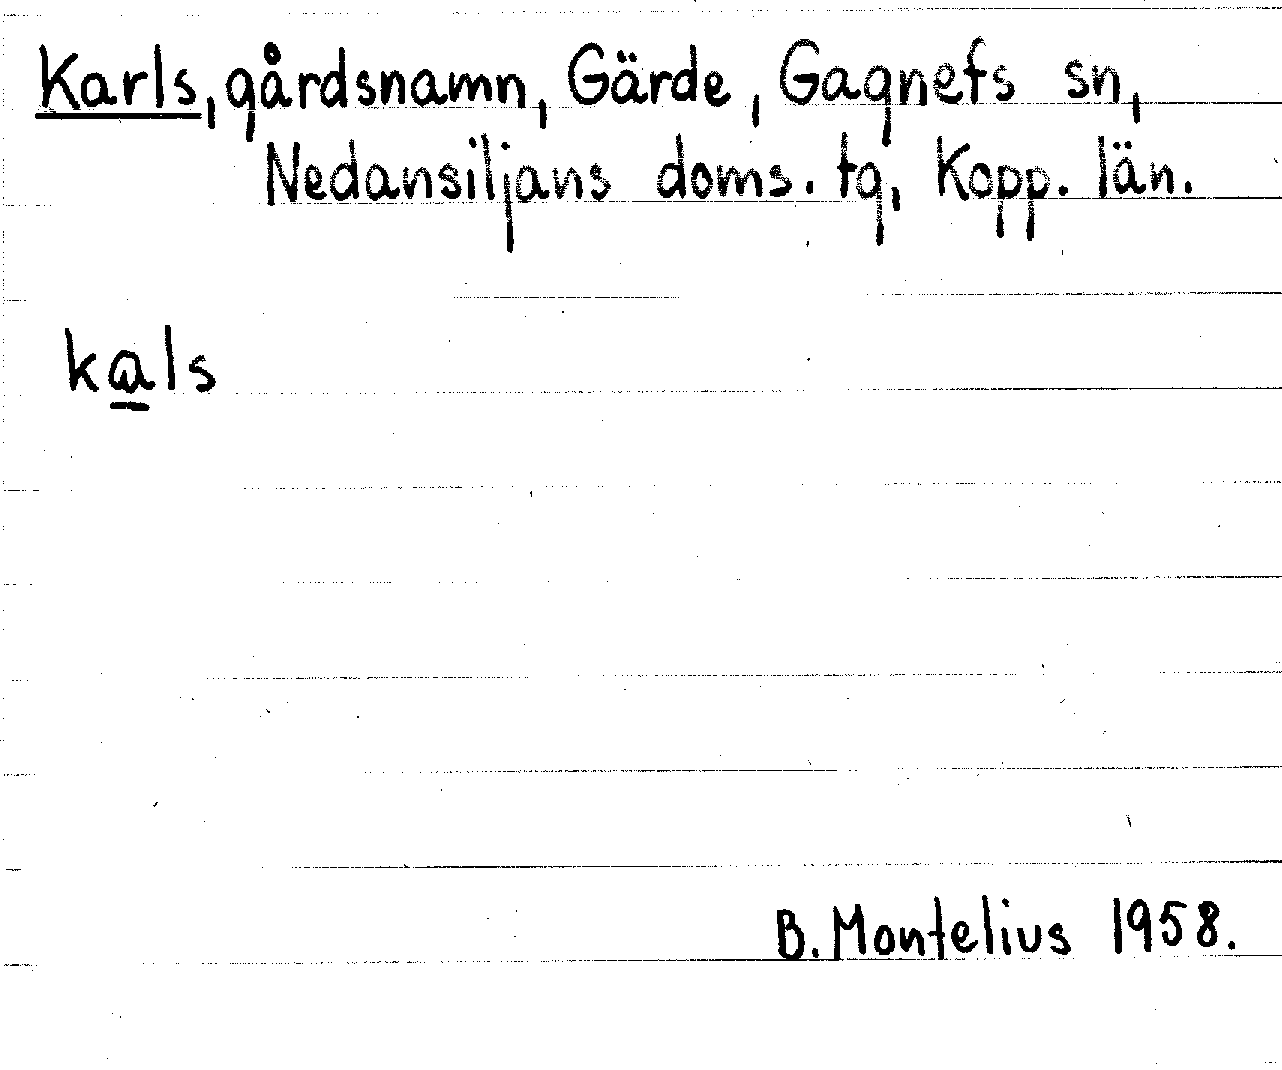 Karls, gårdsnamn, Gärde, Gagnefs sn,
Nedansiljans doms. tg, Kopp. län.
kals
B. Montelius 1958.